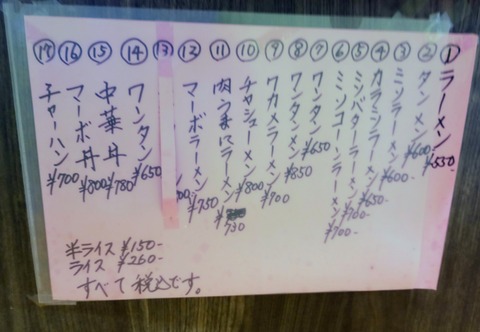 ①ラーメン ¥550-
②タンメン ¥600-
③ミソラーメン ¥600-
④カラミソラーメン ¥650-
⑤ミソバターラーメン ¥700-
⑥ミソコーンラーメン ¥700-
⑦ワンタンメン ¥650
⑧ワンタンメン ¥850
⑨ワカメラーメン ¥700
⑩チャシューメン ¥800
⑪肉うまにラーメン ¥730
⑫マーボラーメン ¥750
⑬
⑭ワンタン ¥650
⑮中華丼 ¥780
⑯マーボ丼 ¥800
⑰チャーハン ¥700
半ライス ¥150-
ライス ¥260-
すべて税込です。